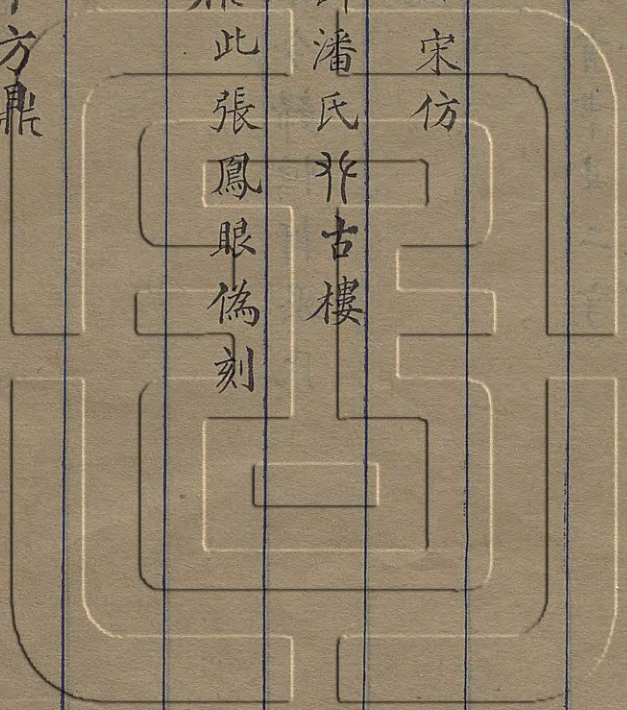 宋仿
潘氏攀古樓
此張鳳眼偽刻
方鼎